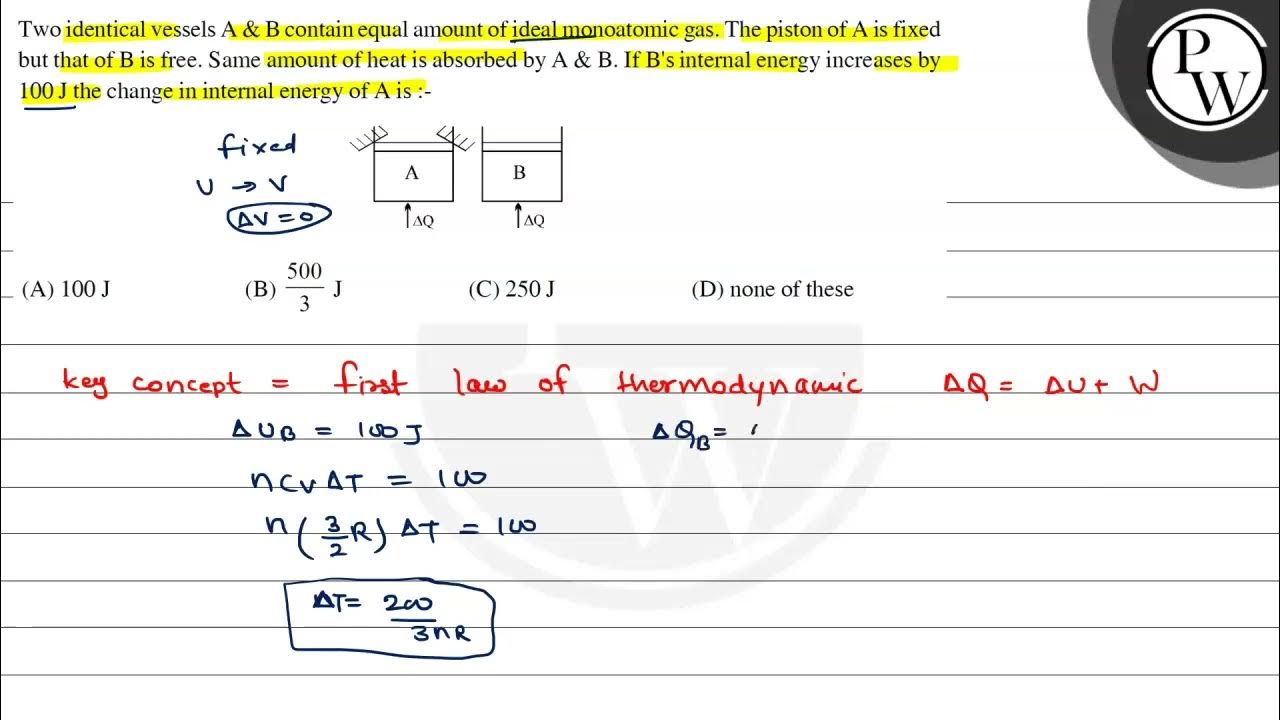 Two identical vessels A & B contain equal amount of ideal monoatomic gas. The piston of A is fixed
but that of B is free. Same amount of heat is absorbed by A & B. If B's internal energy increases by
100 J the change in internal energy of A is :-
PW
fixed
U → V
ΔV = 0
A B
↑ΔQ ↑ΔQ
(A) 100 J (B) 500/3 J (C) 250 J (D) none of these
key concept = first law of thermodynamic ΔQ = ΔU + W
ΔUB = 100J ΔQB =
nCvΔT = 100
n(3/2 R) ΔT = 100
ΔT = 200/3nR